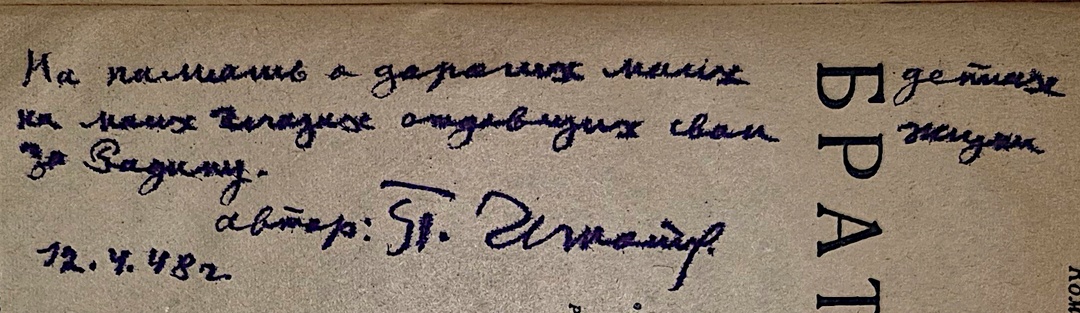 На память о дорогих моих детях
на моих глазах отдавших свои жизни
за Родину.
автор: П.
12.4.48 г.
БРАТ